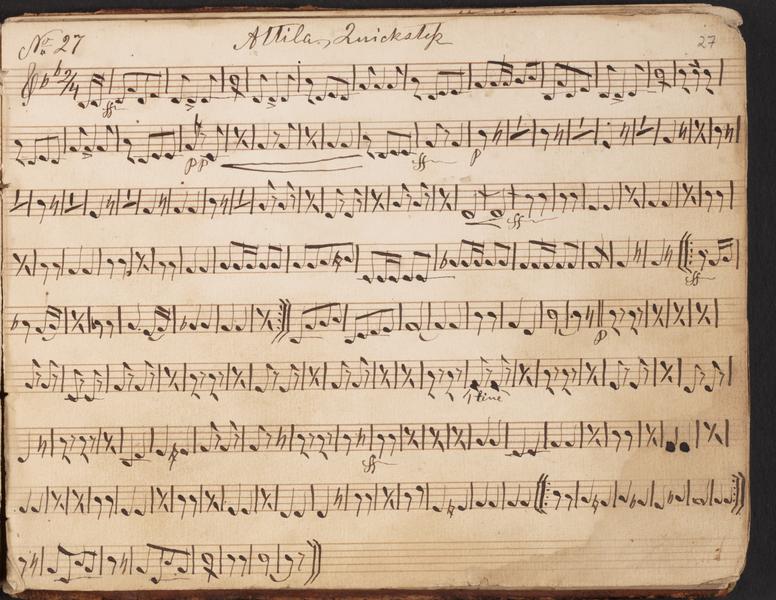 No. 27 Attila, Quickstep 27
2/4
ff
pp ff p
ff
ff
p
1 time
ff